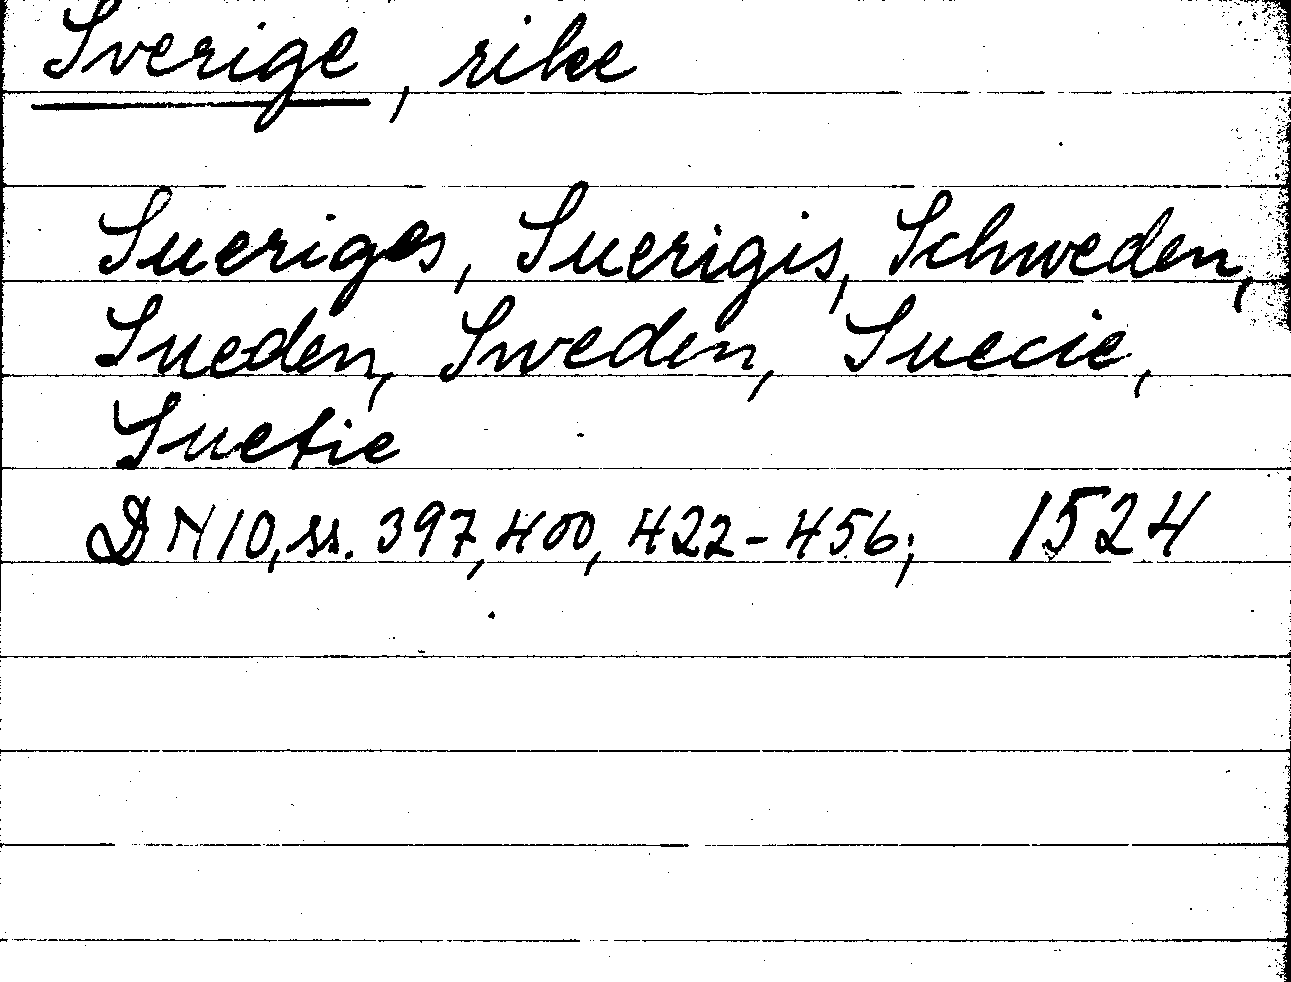 Sverige, rike
Sueriges, Suerigis, Schweden,
Sueden, Sweden, Suecie,
Suetie
DN10, ss. 397, 400, 422-456; 1524